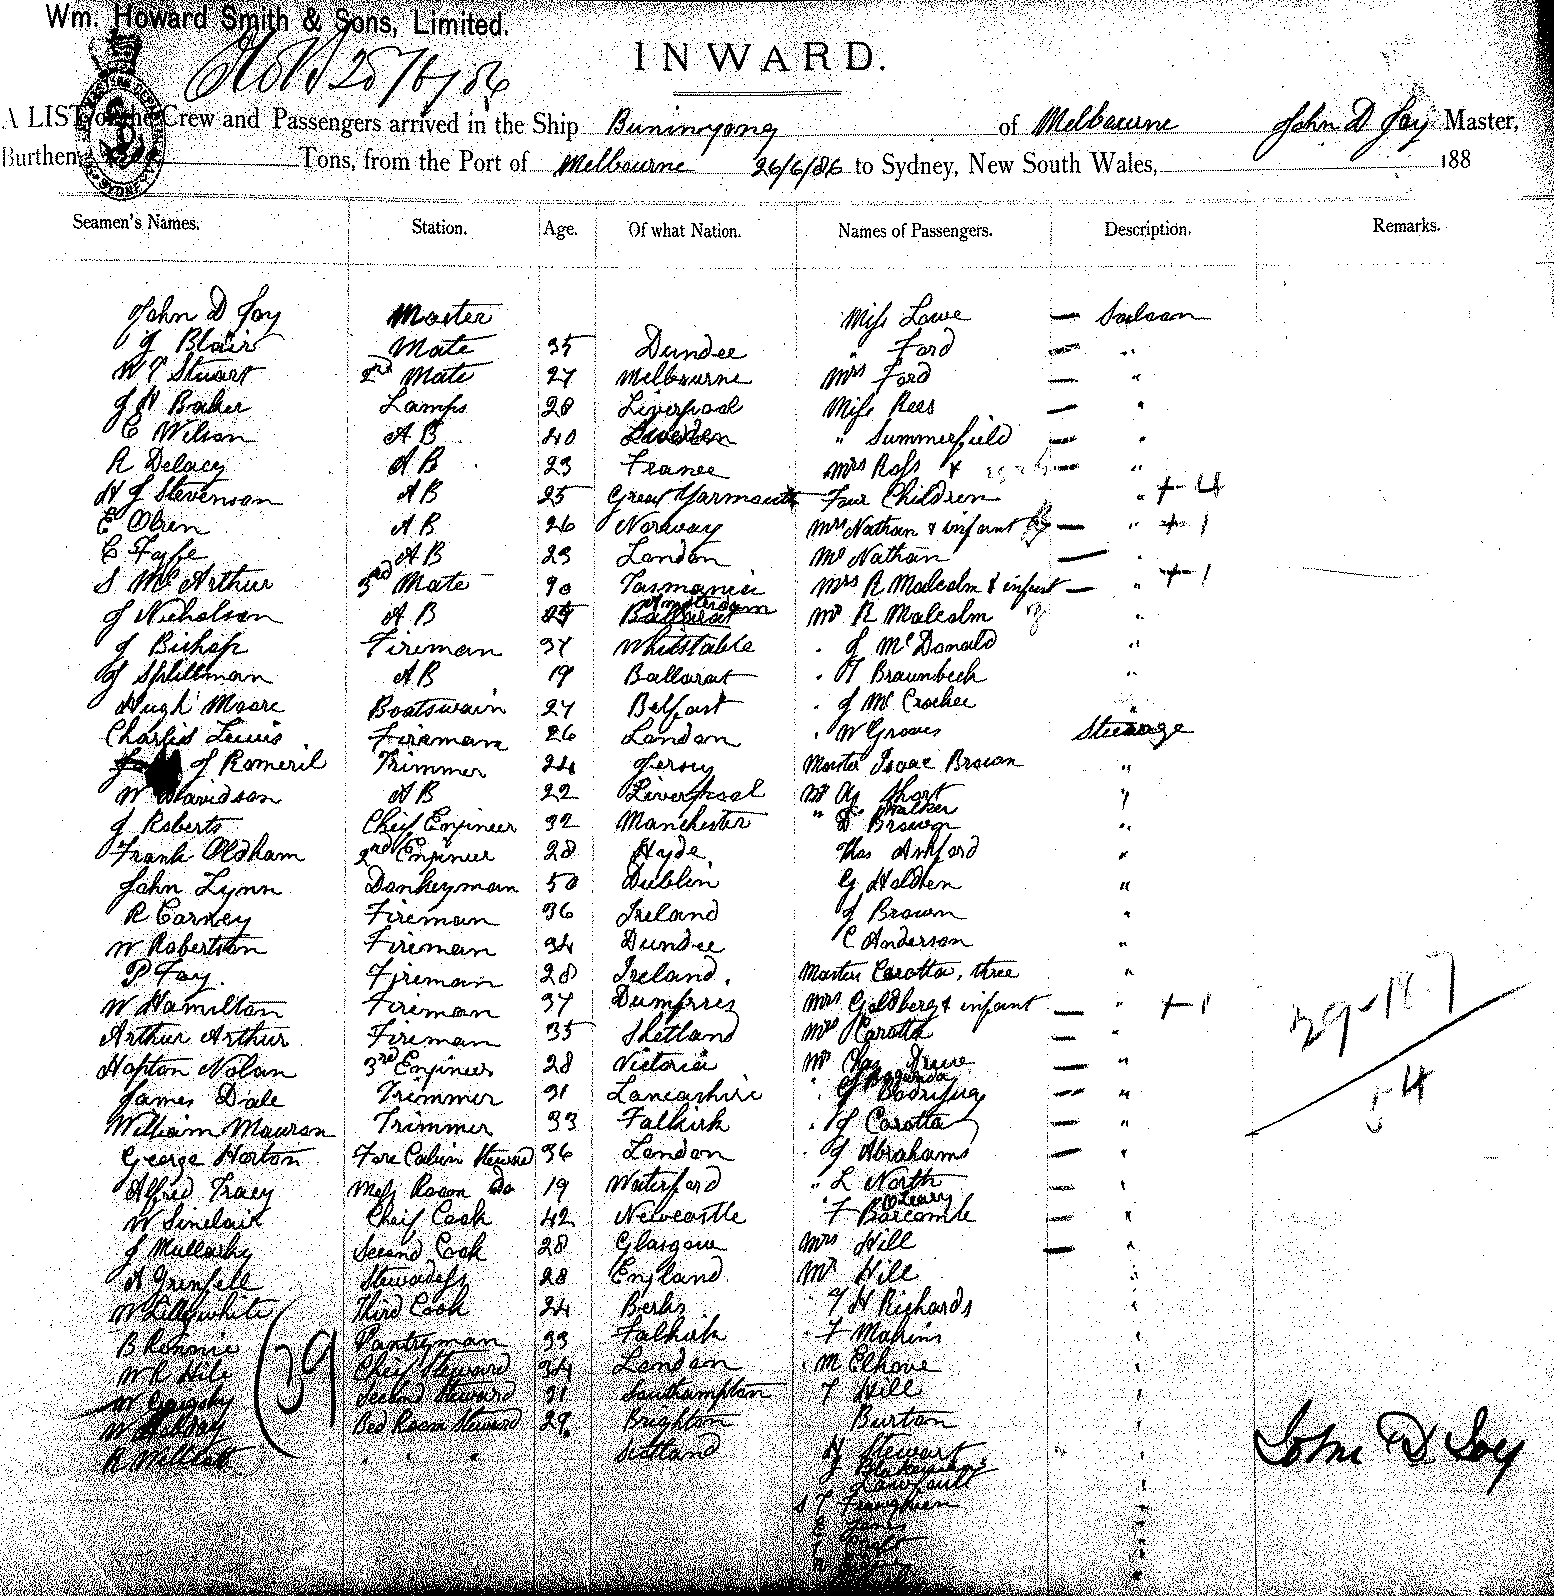 Wm. Howard Smith & Sons, Limited.
INWARD.
A LIST of the Crew and Passengers arrived in the Ship Buninyong of Melbourne John D Joy Master,
Burthen Tons, from the Port of Melbourne 26/6/86 to Sydney, New South Wales, 188
Seamen's Names. Station. Age. Of what Nation. Names of Passengers. Description. Remarks.
John D Joy Master Miss Lowe — Saloon
J Blair Mate 35 Dundee " Ford — "
W T Stuart 2nd Mate 27 Melbourne Mrs Ford — "
J H Baker Lamps 28 Liverpool Miss Rees — "
C Wilson A B 40 Sweden " Summerfield — "
R Delacy A B 23 France Mrs Ross & — "
H J Stevenson A B 25 Great Yarmouth Four Children " + 4
E Olsen A B 26 Norway Mrs Nathan & infant — " + 1
C Fyfe A B 23 London Mr Nathan — "
S McArthur 3rd Mate 30 Tasmania Mrs R Malcolm & infant — " + 1
J Nicholson A B Amsterdam Mr R Malcolm "
J Bishop Fireman 37 Whitstable " J McDonald "
J Splittman A B 19 Ballarat " Braunbeck "
Hugh Moore Boatswain 27 Belfast " J McCrockee "
Charles Lewis Fireman 26 London " W Groves Steerage
J Romeril Trimmer 24 Jersey Master Isaac Brown "
W Davidson A B 22 Liverpool Mr Short "
J Roberts Cheif Engineer 32 Manchester " D Walker Brown "
Frank Oldham 2nd Engineer 28 Hyde Thos Ashford "
John Lynn Donkeyman 50 Dublin G Holden "
R Carney Fireman 36 Ireland J Brown "
W Robertson Fireman 34 Dundee C Anderson "
P Fay Fireman 28 Ireland. Master Carotta, three "
W Hamilton Fireman 37 Dumfries Mrs Goldberg & infant — " + 1
Arthur Arthur Fireman 35 Shetland Mrs Carotta — "
Hopton Nolan 3rd Engineer 28 Victoria Mr Chas Drew — "
James Dale Trimmer 31 Lancashire " J Rodrifug — "
William Mauron Trimmer 33 Falkirk " J Carotta — "
George Horton Fore Cabin Steward 36 London " J Abrahams — "
Alfred Tracy Mess Room do 19 Waterford " L North — "
W Sinclair Cheif Cook 42 Newcastle " F O'Leary Barcombe — "
J Mullarky Second Cook 28 Glasgow Mrs Hill — "
A Grenfell Stewardess 28 England Mr Hill "
W Lillywhite Third Cook 24 Berks " T H Richards "
B Rennie Pantryman 33 Falkirk " F Makins "
W R Hile Cheif Steward 34 London " M Elhone "
W Grigsby Second Steward 31 Southampton T Hill "
W Ashday Bed Room Steward 29 Brighton Burton "
R " " " Scotland H Stewart "
39
54
John D. Joy